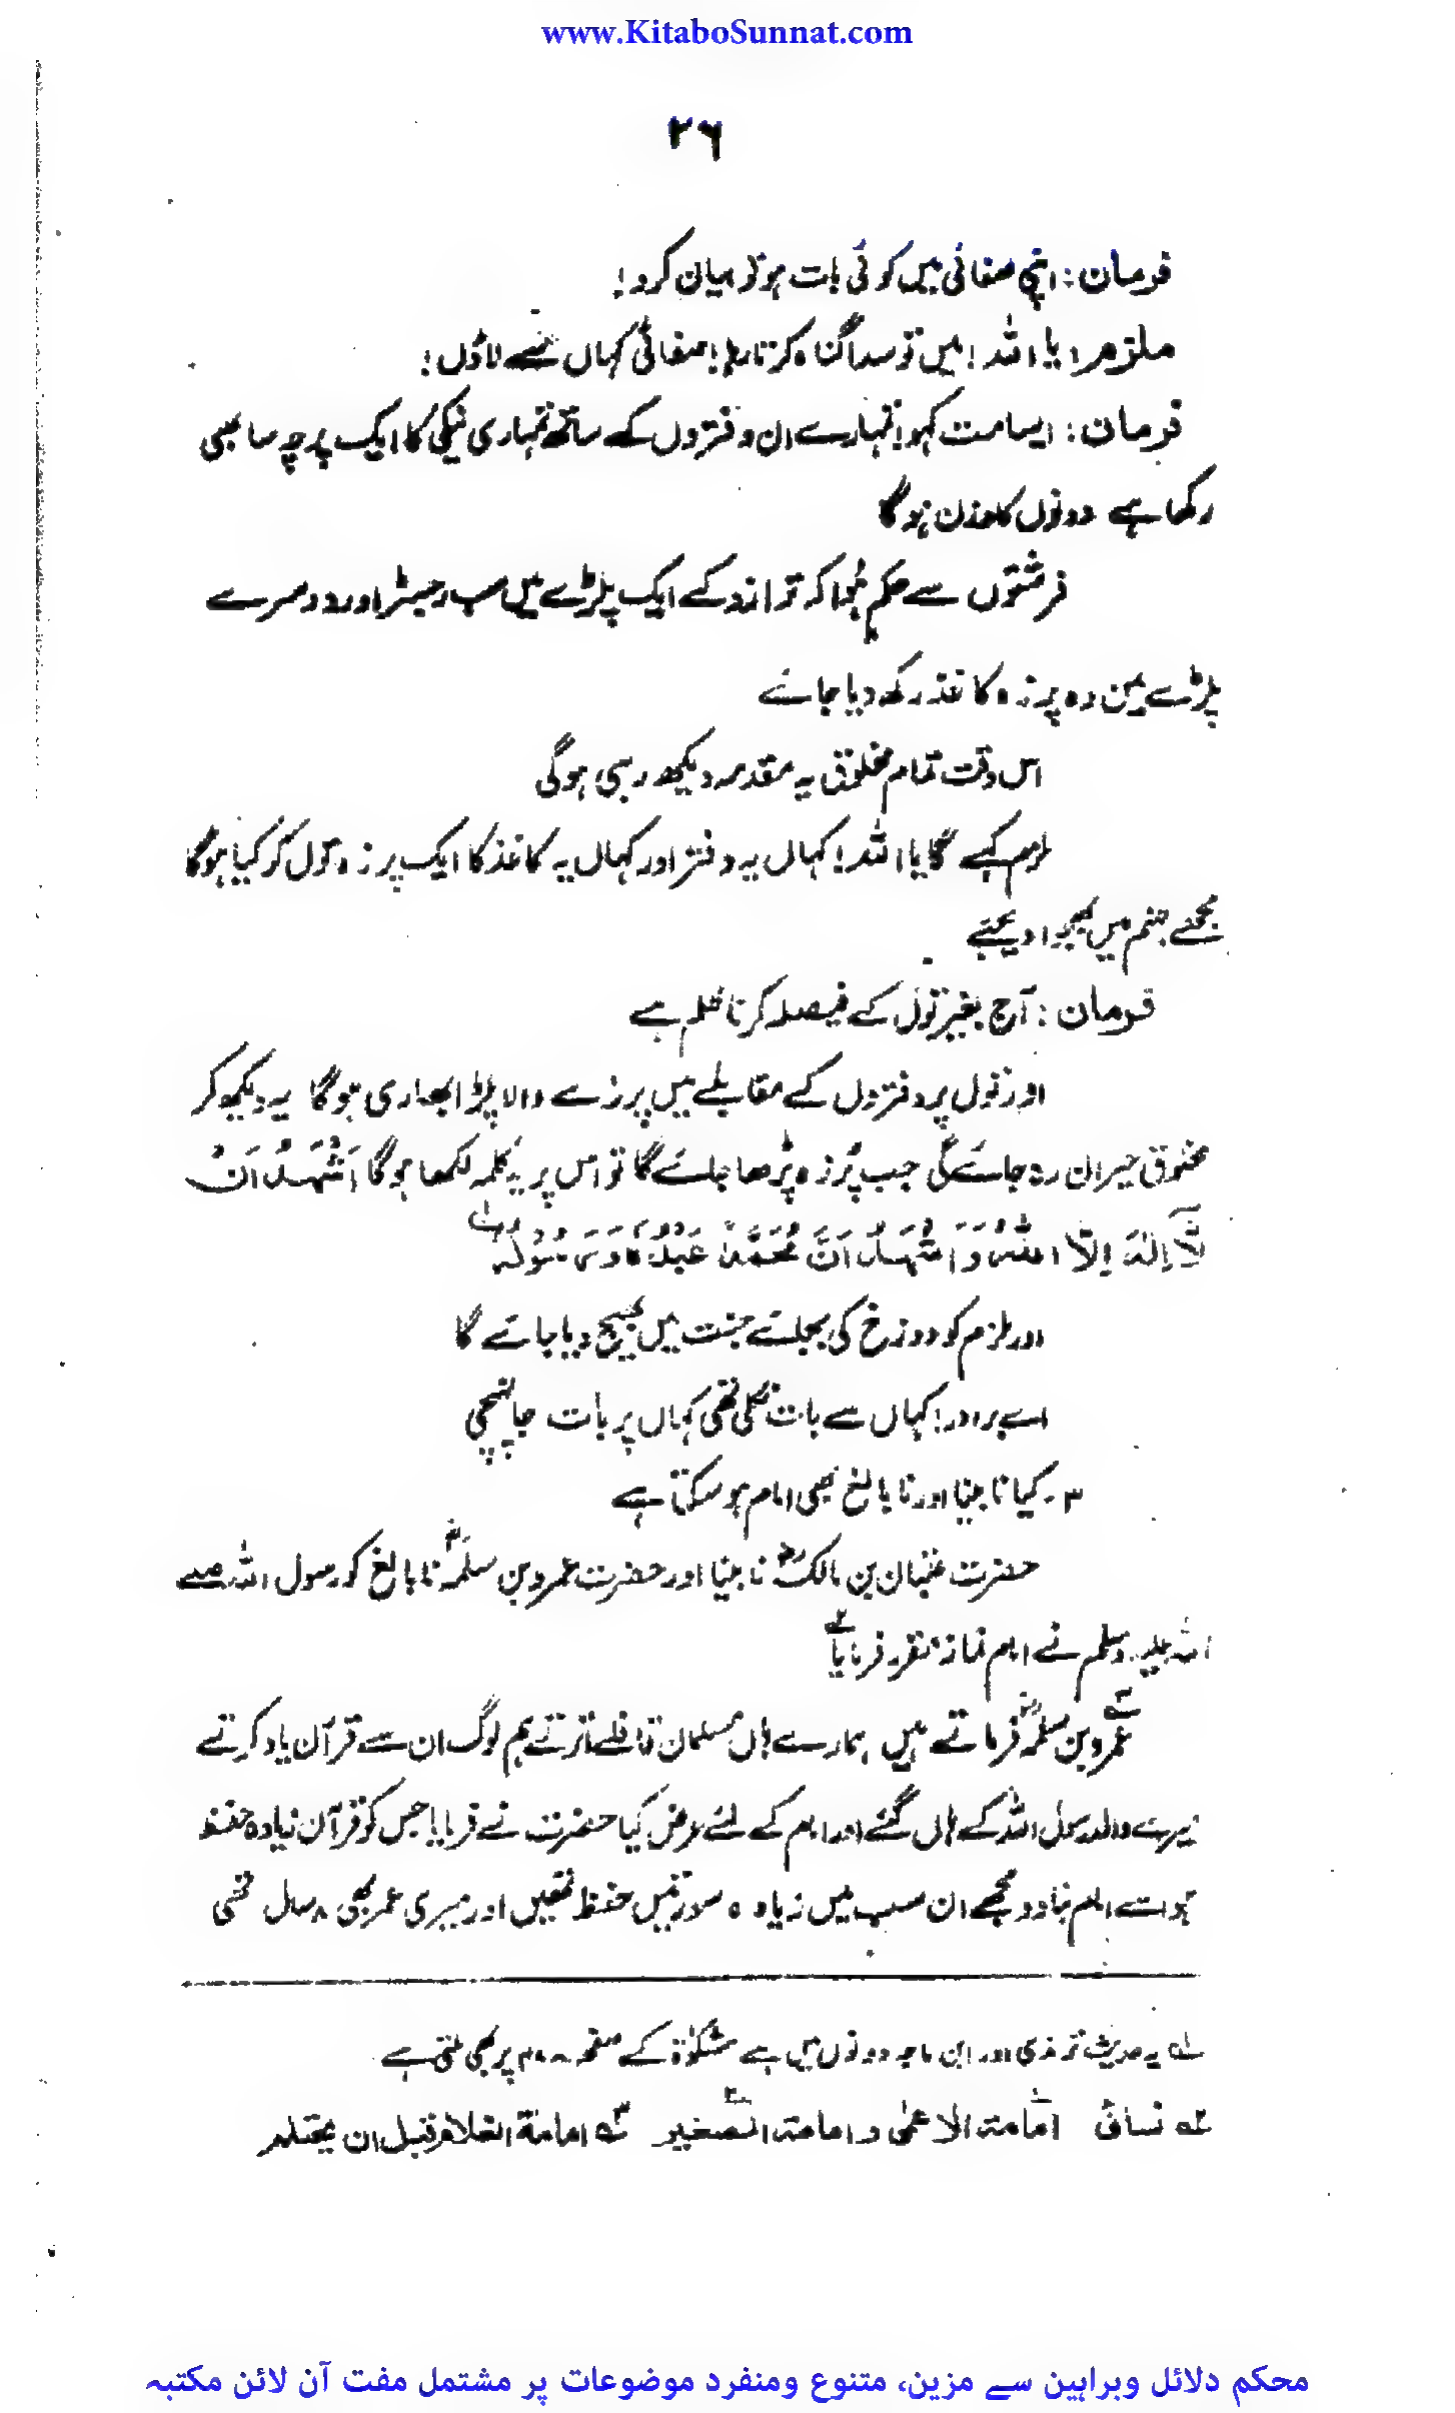 www.KitaboSunnat.com
۲۶
فرمان: اپنی صفائی میں کوئی بات ہو تو بیان کرو!
ملزم: یا اللہ! میں تو سدا گناہ کرتا رہا! صفائی کہاں سے لاؤں!
فرمان: ایسا مت کہو! تمہارے ان دفتروں کے ساتھ تمہاری نیکی کا ایک پرچہ سا بھی
رکھا ہے دونوں کا وزن ہو گا
فرشتوں سے حکم ہُوا کہ ترازو کے ایک پلڑے میں سب رجسٹر اور دوسرے
پلڑے میں وہ پرزہ کاغذ رکھ دیا جائے
اس وقت تمام مخلوق یہ مقدمہ دیکھ رہی ہو گی
ملزم کہے گا یا اللہ! کہاں یہ دفتر اور کہاں یہ کاغذ کا ایک پرزہ، تول کر کیا ہو گا
مجھے جہنم میں بھجوا دیجئے
فرمان: آج بغیر تول کے فیصلہ کرنا ظلم ہے
اور تول پر دفتروں کے مقابلے میں پرزے والا پلڑا بھاری ہو گا یہ دیکھ کر
مخلوق حیران رہ جائے گی جب پُرزہ پڑھا جائے گا تو اس پر یہ کلمہ لکھا ہو گا اَشْهَدُ اَنْ
لَّآ اِلٰهَ اِلَّا اللّٰهُ وَاَشْهَدُ اَنَّ مُحَمَّدًا عَبْدُهٗ وَرَسُوْلُهٗ ۱؎
اور ملزم کو دوزخ کی بجائے جنت میں بھیج دیا جائے گا
اے برادر! کہاں سے بات نکلی تھی کہاں پر بات جا پہنچی
۳۔ کیا نابینا اور نابالغ بھی امام ہو سکتی ہے
حضرت عتبان بن مالکؓ نابینا اور حضرت عمرو بن سلمہؓ نابالغ کو رسول اللہ صلے
اللہ علیہ وسلم نے امام نماز مقرر فرمایا ۲؎
۳؎ عمرو بن سلمہؓ فرماتے ہیں ہمارے ہاں مسلمان قافلے اترتے ہم لوگ ان سے قرآن یاد کرتے
میرے والد رسول اللہؐ کے ہاں گئے اور امام کے لئے عرض کیا حضرت نے فرمایا جس کو قرآن زیادہ حفظ
ہو اسے امام بنا دو مجھے ان سب میں زیادہ سورتیں حفظ تھیں اور میری عمر بھی ۸ سال تھی
۱؎ یہ حدیث ترمذی اور ابن ماجہ دونوں میں ہے مشکوٰۃ کے صفحہ پر بھی ملتی ہے
۲؎ نسائی امامۃ الاعمٰی و امامۃ الصغیر ۳؎ امامۃ الغلام قبل ان یحتلم
محکم دلائل وبراہین سے مزین، متنوع ومنفرد موضوعات پر مشتمل مفت آن لائن مکتبہ